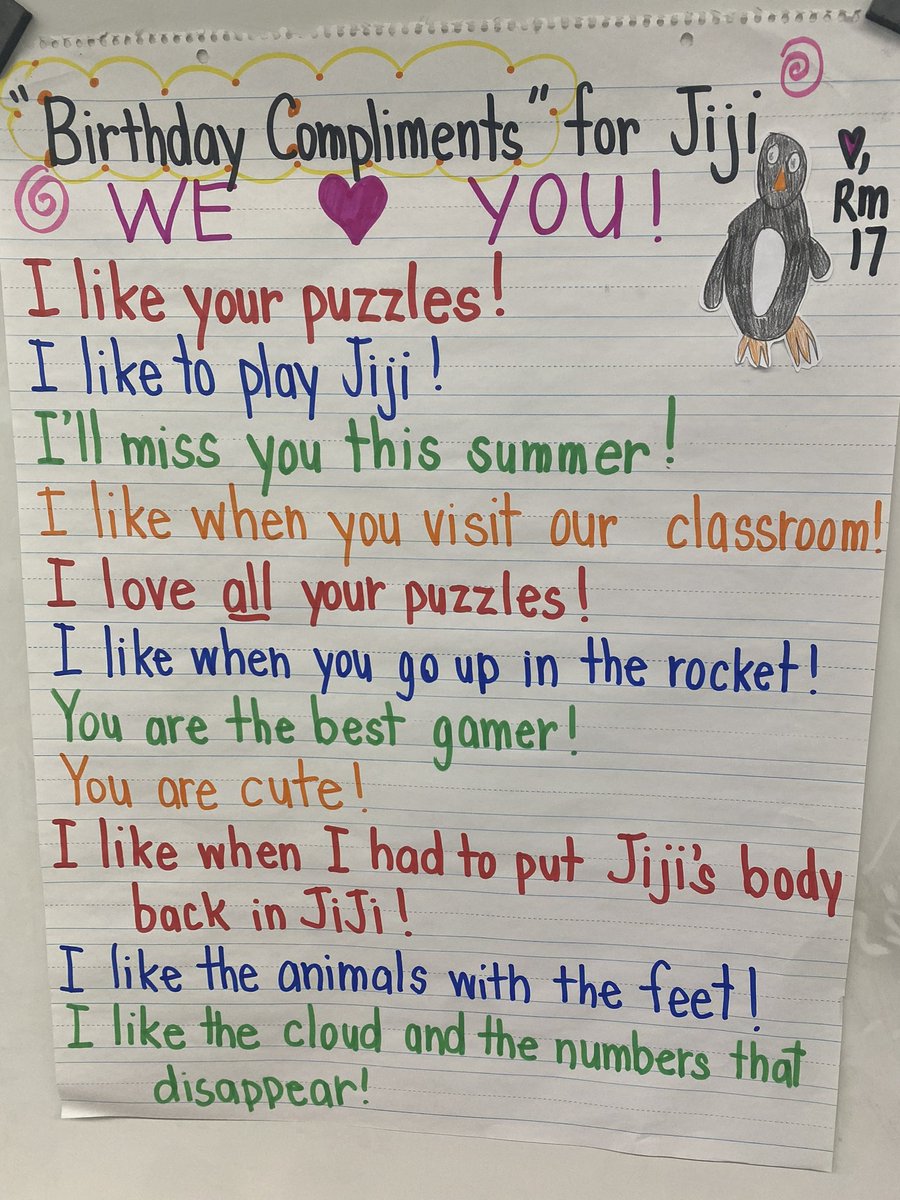 "Birthday Compliments" for Jiji
WE YOU!
, Rm 17
I like your puzzles!
I like to play Jiji!
I'll miss you this summer!
I like when you visit our classroom!
I love all your puzzles!
I like when you go up in the rocket!
You are the best gamer!
You are cute!
I like when I had to put Jiji's body
back in JiJi!
I like the animals with the feet!
I like the cloud and the numbers that
disappear!